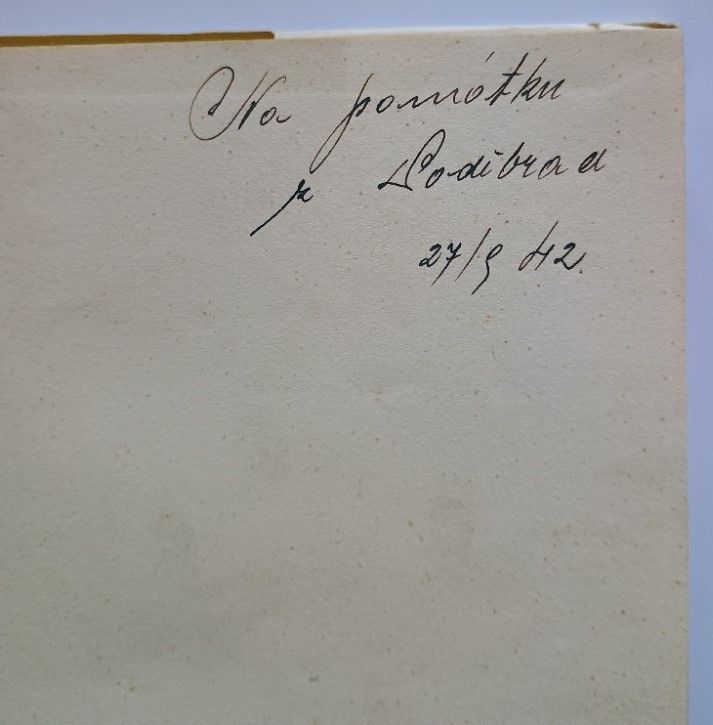 Na památku
z Poděbrad
27/9 42.